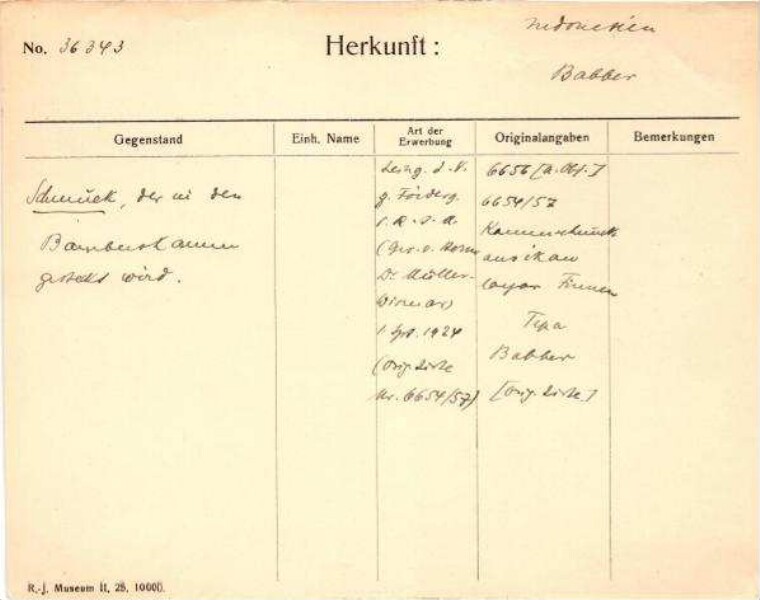 No. 36343
Herkunft:
Indonesien
Babber
Gegenstand
Einh. Name
Art der Erwerbung
Originalangaben
Bemerkungen
Schmuck, der in den
Bambuskamm
gesteckt wird.
g. Förderg.
Dr. Müller-
Wismar)
1924
(Orig. Liste
Nr. 6654/57)
6656
6654/57
Kammschmuck
aus ikan
Tepa
Babber
[Orig. Liste.]
R.-J. Museum II, 28, 10000.